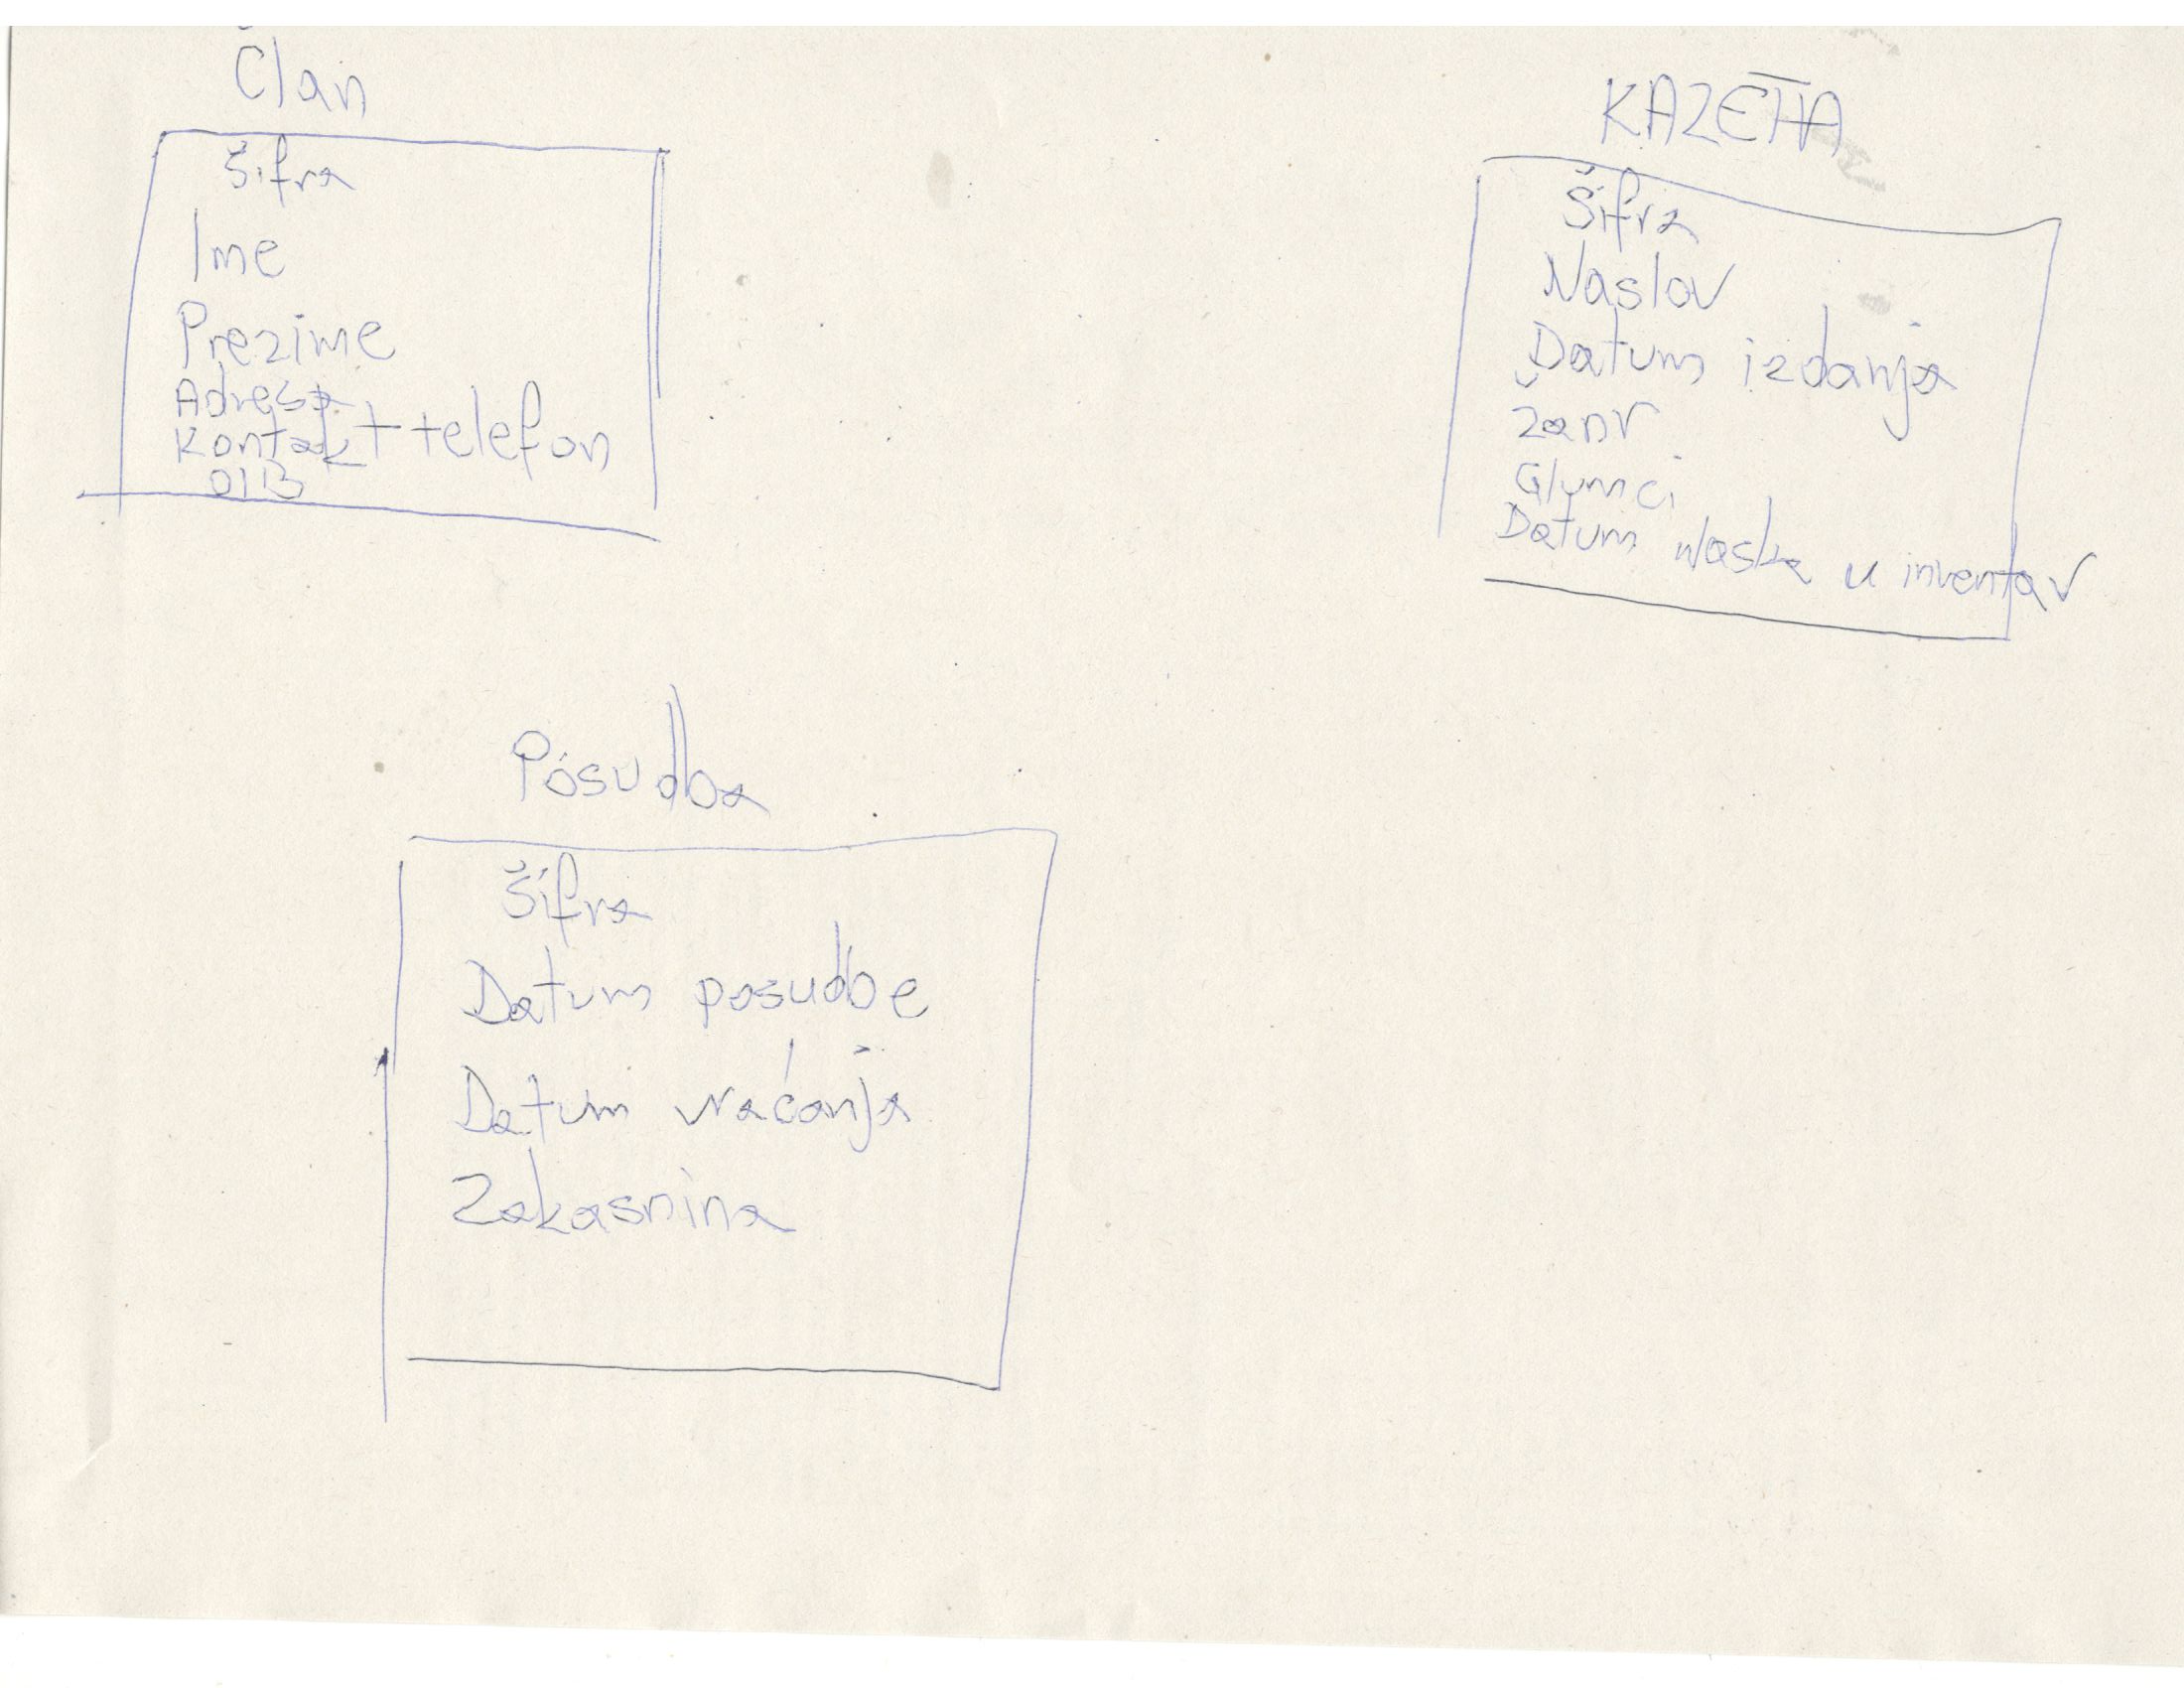 Član
Šifra
Ime
Prezime
Adresa
Kontakt telefon
OIB
KAZETA
Šifra
Naslov
Datum izdanja
Žanr
Glumci
Datum ulaska u inventar
Posudba
Šifra
Datum posudbe
Datum vraćanja
Zakasnina